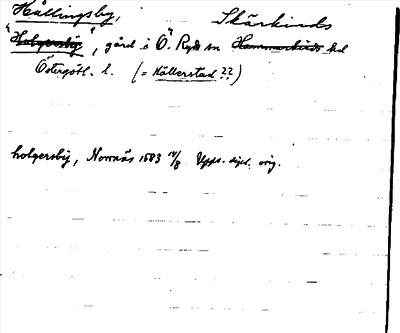 Hällingsby, Skärkinds
"Holgersby", gård i Ö. Ryd sn Hammarkinds hd
Östergötl. l. (= Källerstad ??)
holgersby, Norrnäs 1503 14/8 Upps. dipl. orig.